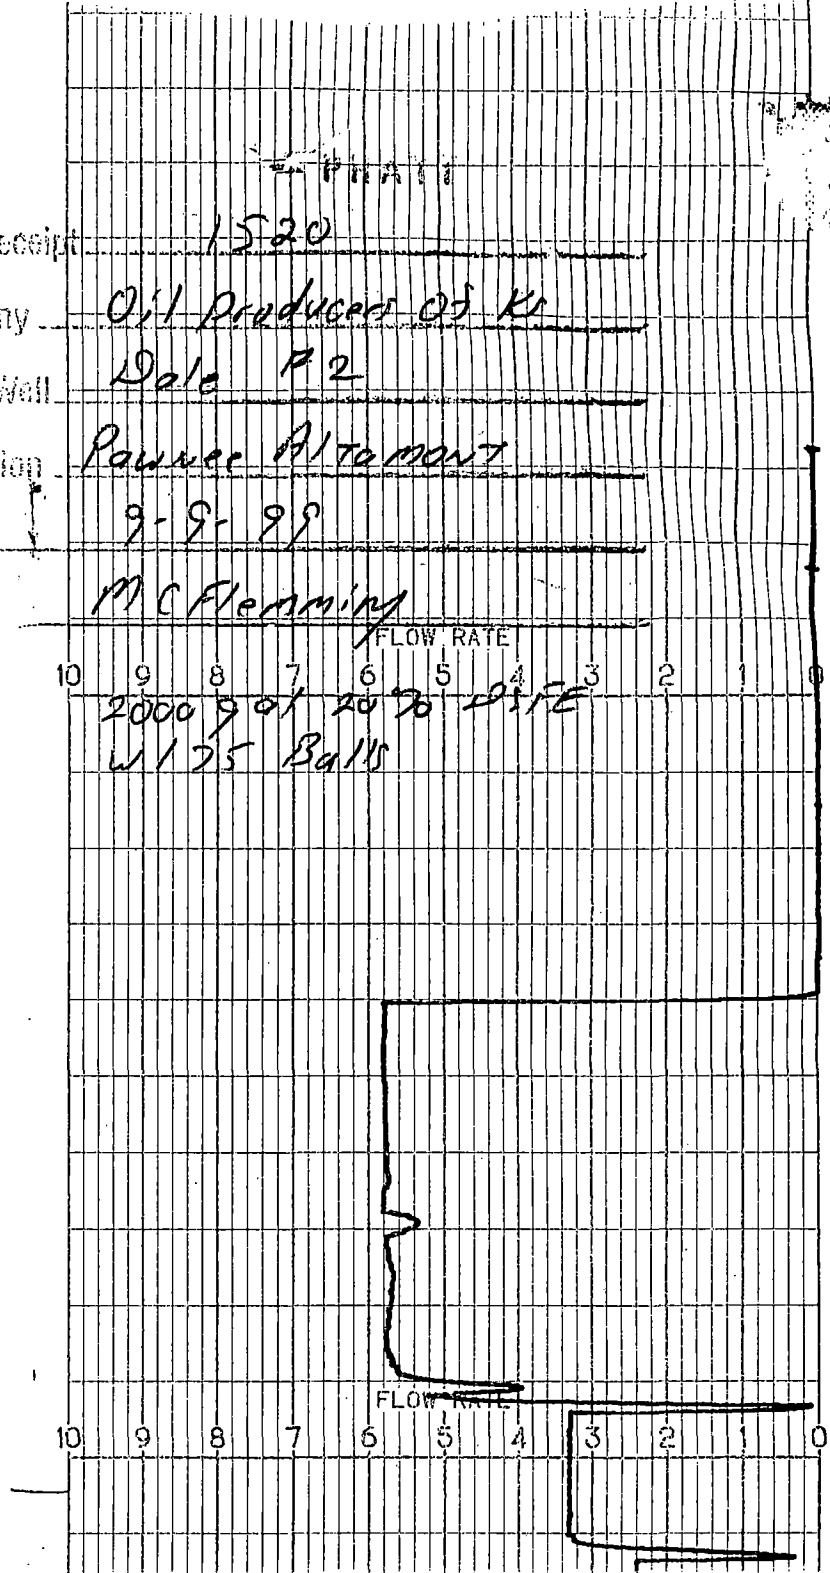 PRATT
eceipt 1520
ny Oil Producers Of Ks
Well Dale P 2
ion Pawnee Altamont
9-9-99
M C Flemming
FLOW RATE
10 9 8 7 6 5 4 3 2 1 0
2000 gal 20% DSFE
w/75 Balls
FLOW RATE
10 9 8 7 6 5 4 3 2 1 0